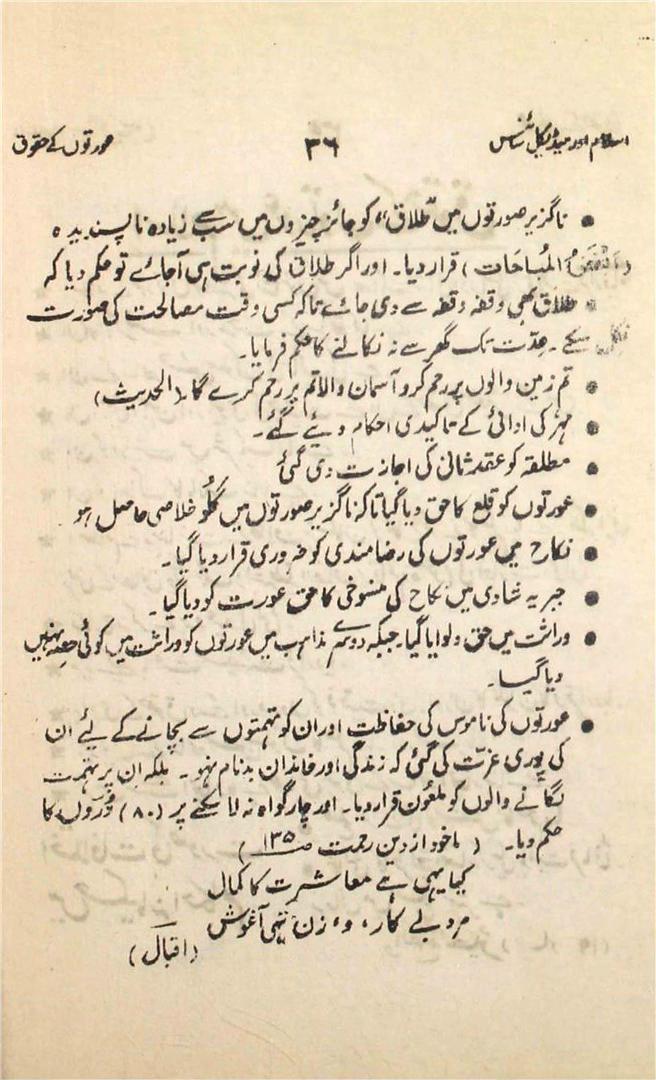 اسلام اور میڈیکل سائنس ۳۶ عورتوں کے حقوق
● ناگزیر صورتوں میں "طلاق" کو جائز چیزوں میں سب سے زیادہ ناپسندیدہ
المُبَاحَات) قرار دیا۔ اور اگر طلاق کی نوبت ہی آجائے تو حکم دیا کہ
● طلاق بھی وقفہ وقفہ سے دی جائے تاکہ کسی وقت مصالحت کی صورت
سکے۔ عدّت تک گھر سے نہ نکالنے کا حکم فرمایا۔
● تم زمین والوں پر رحم کرو آسمان والا تم پر رحم کرے گا۔ (الحدیث)
● مہر کی ادائی کے تاکیدی احکام دیئے گئے۔
● مطلقہ کو عقد ثانی کی اجازت دی گئی
● عورتوں کو قلع کا حق دیا گیا تاکہ ناگزیر صورتوں میں گلُو خلاصی حاصل ہو
● نکاح میں عورتوں کی رضامندی کو ضروری قرار دیا گیا۔
● جبریہ شادی میں نکاح کی منسوخی کا حق عورت کو دیا گیا۔
● وراثت میں حق دلوایا گیا۔ جبکہ دوسرے مذاہب میں عورتوں کو وراثت میں کوئی حصہ نہیں
دیا گیا۔
● عورتوں کی ناموس کی حفاظت اور ان کو تہمتوں سے بچانے کے لیئے ان
کی پوری عزّت کی گئی کہ زندگی اور خاندان بدنام نہو۔ بلکہ ان پر تہمت
لگانے والوں کو ملعُون قرار دیا۔ اور چار گواہ نہ لا سکنے پر (۸۰) دُرّوں کا
حکم دیا۔ (ماخوذ از دین رحمت صـ ۱۳۵)
کیا یہی ہے معاشرت کا کمال
مرد بے کار، و، زن تہی آغوش
(اقبال)